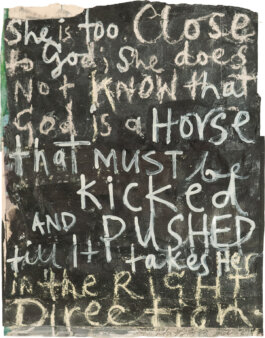 She is too Close
to God; She does
Not KNOW that
God is a HORSE
that MUST be
kicked
AND PUSHED
till It takes Her
in the RIGHT
Direction.